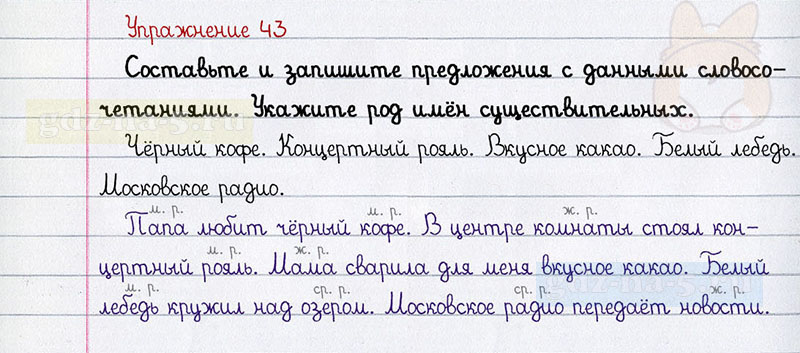 Упражнение 43
Составьте и запишите предложения с данными словосо-
четаниями. Укажите род имён существительных.
Чёрный кофе. Концертный рояль. Вкусное какао. Белый лебедь.
Московское радио.
м. р. м. р. ж. р.
Папа любит чёрный кофе. В центре комнаты стоял кон-
м. р. ж. р.
цертный рояль. Мама сварила для меня вкусное какао. Белый
м. р. ср. р. ср. р. ж. р.
лебедь кружил над озером. Московское радио передаёт новости.